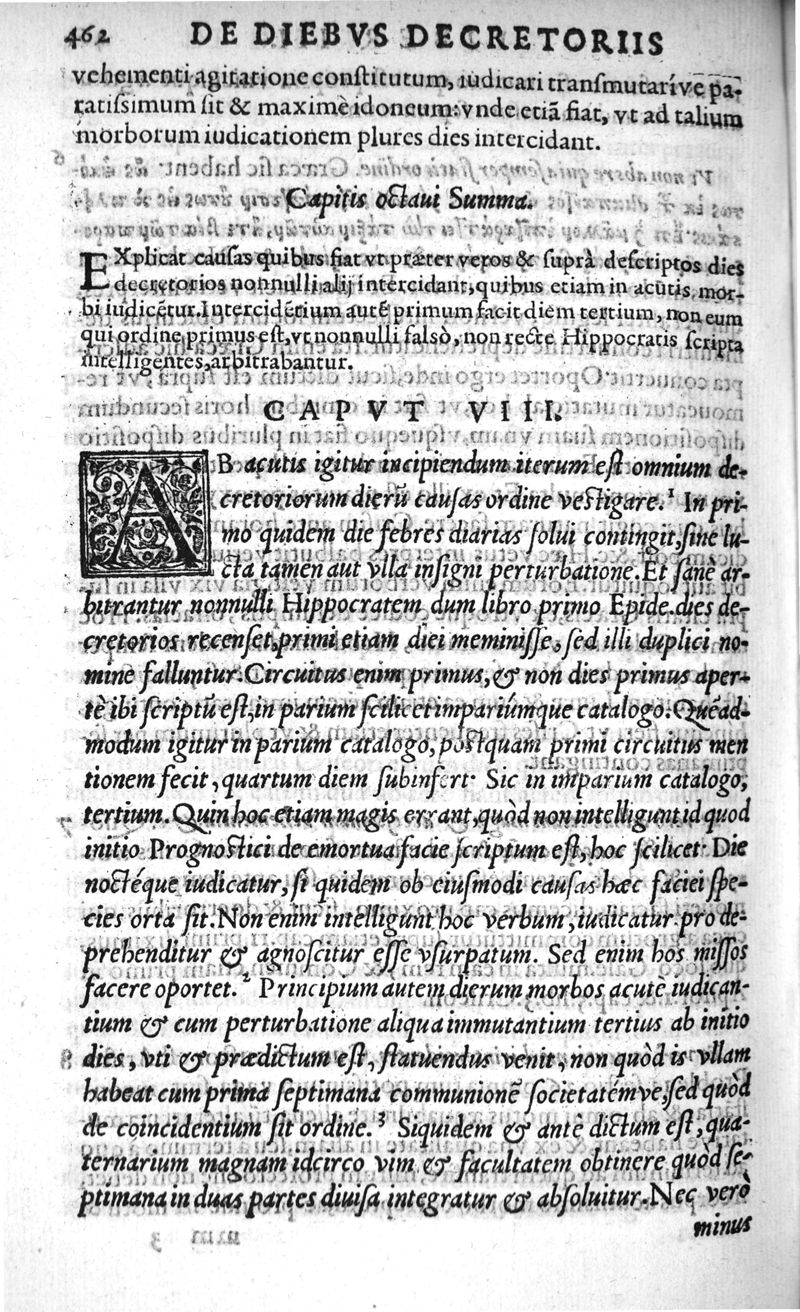 462 DE DIEBVS DECRETORIIS
vehementi agitatione conſtitutum, iudicari tranſmutaríve pa-
ratiſsimum ſit & maximè idoneum: vnde etiã fiat, vt ad talium
morborum iudicationem plures dies intercidant.
Capitis octaui Summa.
EXplicat cauſas quibus fiat vt præter veros & ſuprà deſcriptos dies
decretorios nonnulli alij intercidant, quibus etiam in acutis mor-
bi iudicẽtur. Intercidẽtium autẽ primum facit diem tertium, non eum
qui ordine primus eſt, vt nonnulli falsò, non rectè Hippocratis ſcripta
intelligentes, arbitrabantur.
CAPVT VIII.
AB acutis igitur incipiendum iterum eſt omnium de-
cretoriorum dierũ cauſas ordine veſtigare.¹ In pri-
mo quidem die febres diarias ſolui contingit, ſine lu-
cta tamen aut vlla inſigni perturbatione. Et ſanè ar-
bitrantur nonnulli Hippocratem dum libro primo Epide. dies de-
cretorios recenſet, primi etiam diei meminiſſe, ſed illi duplici no-
mine falluntur. Circuitus enim primus, & non dies primus aper-
tè ibi ſcriptũ eſt, in parium ſcilicet impariúmque catalogo. Quẽad-
modum igitur in parium catalogo, poſtquam primi circuitus men
tionem fecit, quartum diem ſubinfert. Sic in imparium catalogo,
tertium. Quin hoc etiam magis errant, quòd non intelligunt id quod
initio Prognoſtici de emortua facie ſcriptum eſt, hoc ſcilicet. Die
noctéque iudicatur, ſi quidem ob eiuſmodi cauſas hæc faciei ſpe-
cies orta ſit. Non enim intelligunt hoc verbum, iudicatur pro de-
prehenditur & agnoſcitur eſſe vſurpatum. Sed enim hos miſſos
facere oportet.² Principium autem dierum morbos acutè iudican-
tium & cum perturbatione aliqua immutantium tertius ab initio
dies, vti & prædictum eſt, ſtatuendus venit, non quòd is vllam
habeat cum prima ſeptimana communionẽ ſocietatémve, ſed quòd
de coincidentium ſit ordine.³ Siquidem & antè dictum eſt, qua-
ternarium magnam idcirco vim & facultatem obtinere quòd ſe-
ptimana in duas partes diuiſa integratur & abſoluitur. Nec verò
minus